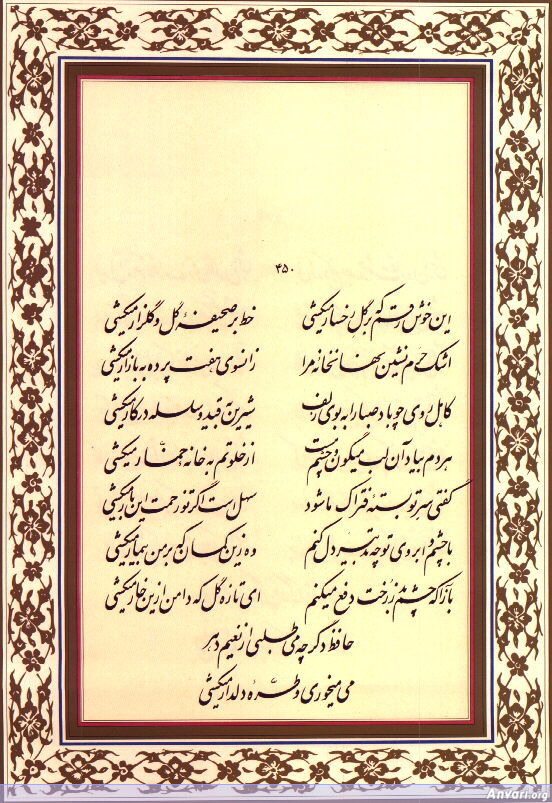 ۴۵۰
این خوش رقم که بر گل رخسار میکشی خط بر صحیفهٔ گل و گلزار میکشی
اشک حرم نشین نهانخانه مرا زانسوی هفت پرده به بازار میکشی
کاهل روی چو باد صبا را به بوی زلف شیرین به قید و سلسله در کار میکشی
هر دم بیاد آن لب میگون و چشم مست از خلوتم به خانه خمّار میکشی
گفتی سر تو بستهٔ فتراک ما شود سهل است اگر تو زحمت این بار میکشی
با چشم و ابروی تو چه تدبیر دل کنم وه زین کمان که بر من بیمار میکشی
بازآ که چشم بد ز رخت دفع میکنم ای تازه گل که دامن ازین خار میکشی
حافظ دگر چه می طلبی از نعیم دهر
می میخوری و طرّه دلدار میکشی
Anvari.org